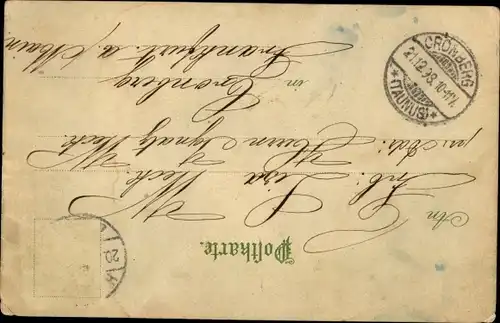 Postkarte.
An
Frl: Lisa Weck
pr: Adr: Herrn Ignatz Weck
in Cronberg
Frankfurt a/Main.
CRONBERG
(TAUNUS)
21.12.98. 10-11V.